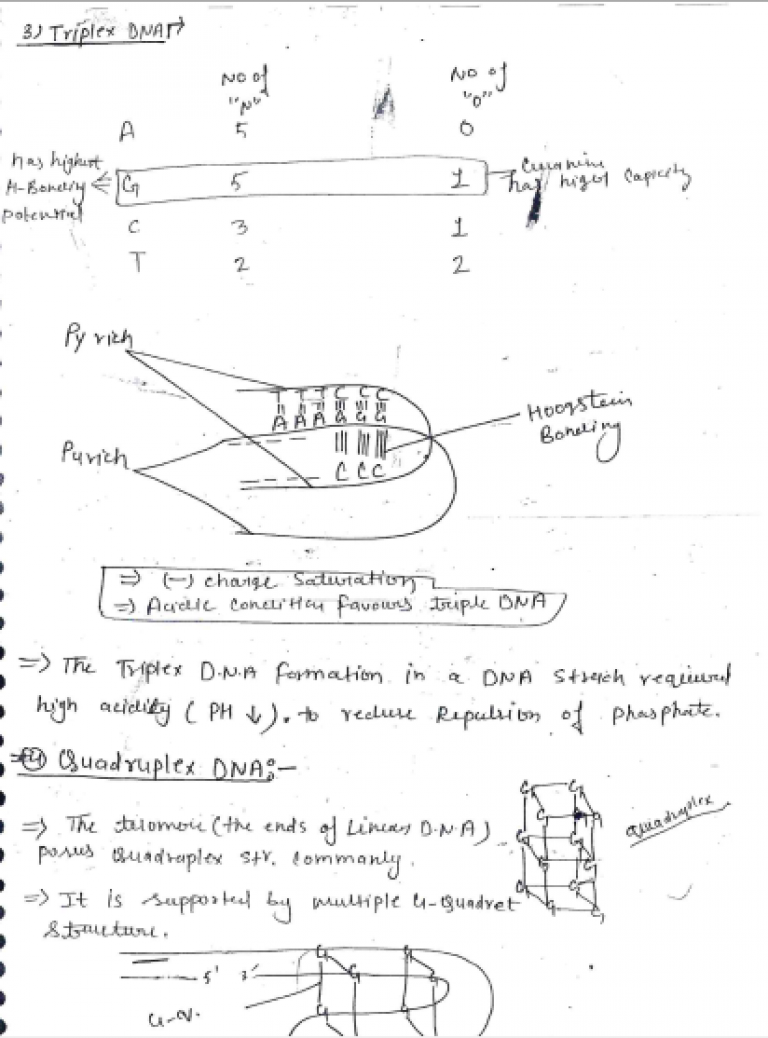 3) Triplex DNA →
No of "N"
No of "O"
A 5 0
has highest H-Bonding potential
G 5 1
has higest Capacity
C 3 1
T 2 2
Py rich
T T T C C C
A A A G G G
Hoogstein Bonding
Purich
C C C
⇒ (-) charge Saturation
⇒ Acidic Condition favours triple DNA
⇒ The Triplex D.N.A formation in a DNA Strech required
high acidity ( PH ↓ ). to reduse Repulsion of phosphate.
⇒ (4) Quadruplex DNA:-
⇒ The telomore (the ends of Linear D.N.A)
posses Quadraplex str. Commanly.
quadruplex
⇒ It is supported by multiple G-Quadret
Structure.
5' 3'
G G
G G
G G